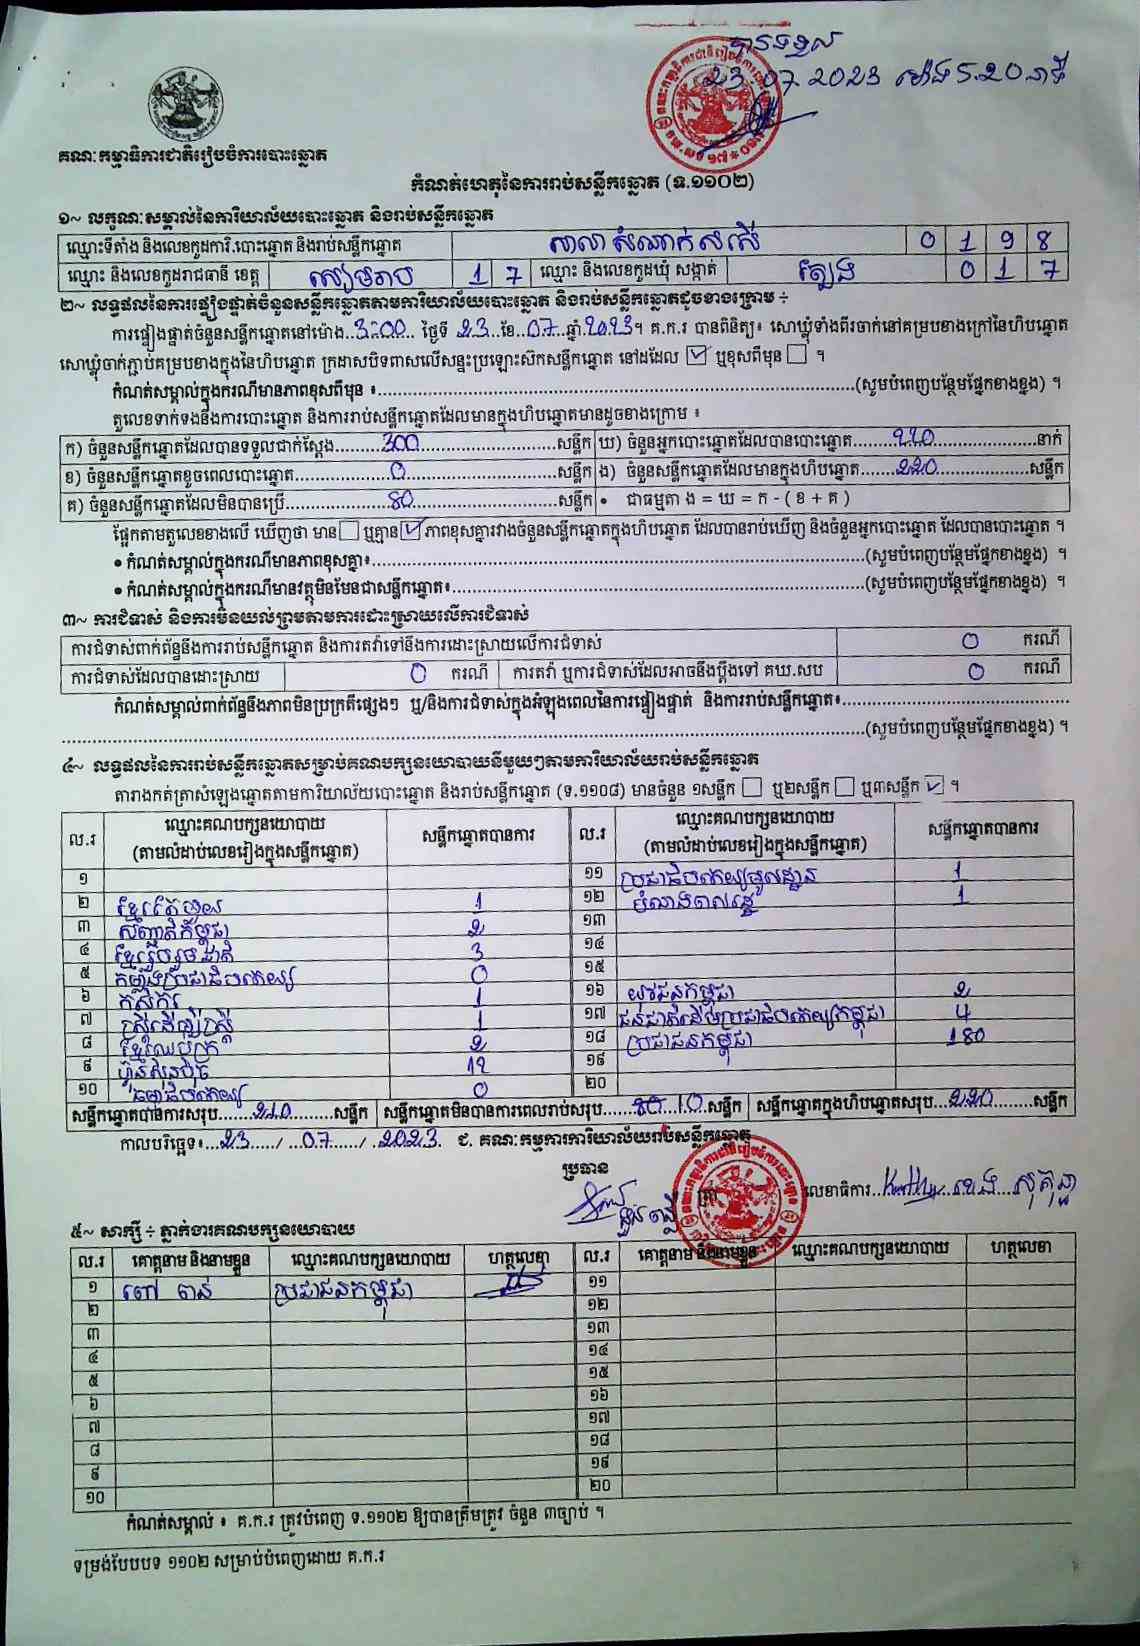 បានទទួល
23.07.2023 ម៉ោង 5.20 នាទី
គណៈកម្មាធិការជាតិរៀបចំការបោះឆ្នោត
កំណត់ហេតុនៃការរាប់សន្លឹកឆ្នោត (ទ.១១០២)
១~ លក្ខណៈសម្គាល់នៃការិយាល័យបោះឆ្នោត និងរាប់សន្លឹកឆ្នោត
ឈ្មោះទីតាំង និងលេខកូដការិ.បោះឆ្នោត និងរាប់សន្លឹកឆ្នោត សាលាសំណាក់ 0 1 9 8
ឈ្មោះ និងលេខកូដរាជធានី ខេត្ត សៀមរាប 1 7 ឈ្មោះ និងលេខកូដឃុំ សង្កាត់ ត្បែង 0 1 7
២~ លទ្ធផលនៃការផ្ទៀងផ្ទាត់ចំនួនសន្លឹកឆ្នោតតាមការិយាល័យបោះឆ្នោត និងរាប់សន្លឹកឆ្នោតដូចខាងក្រោម ÷
ការផ្ទៀងផ្ទាត់ចំនួនសន្លឹកឆ្នោតនៅម៉ោង 3:00 ថ្ងៃទី 23 ខែ 07 ឆ្នាំ 2023 ។ គ.ក.រ បានពិនិត្យ៖ សោឃ្លុំទាំងពីរចាក់នៅគម្របខាងក្រៅនៃហិបឆ្នោត
សោឃ្លុំចាក់ភ្ជាប់គម្របខាងក្នុងនៃហិបឆ្នោត ក្រដាសបិទពាសលើសន្ទះប្រឡោះស៊កសន្លឹកឆ្នោត នៅដដែល ☑ ឬខុសពីមុន ☐ ។
កំណត់សម្គាល់ក្នុងករណីមានភាពខុសពីមុន ៖ (សូមបំពេញបន្ថែមផ្នែកខាងខ្នង) ។
តួលេខទាក់ទងនឹងការបោះឆ្នោត និងការរាប់សន្លឹកឆ្នោតដែលមានក្នុងហិបឆ្នោតមានដូចខាងក្រោម ៖
ក) ចំនួនសន្លឹកឆ្នោតដែលបានទទួលជាក់ស្តែង 300 សន្លឹក ឃ) ចំនួនអ្នកបោះឆ្នោតដែលបានបោះឆ្នោត 220 នាក់
ខ) ចំនួនសន្លឹកឆ្នោតខូចពេលបោះឆ្នោត 0 សន្លឹក ង) ចំនួនសន្លឹកឆ្នោតដែលមានក្នុងហិបឆ្នោត 220 សន្លឹក
គ) ចំនួនសន្លឹកឆ្នោតដែលមិនបានប្រើ 80 សន្លឹក • ជាធម្មតា ង = ឃ = ក - ( ខ + គ )
ផ្អែកតាមតួលេខខាងលើ ឃើញថា មាន ☐ ឬគ្មាន ☑ ភាពខុសគ្នារវាងចំនួនសន្លឹកឆ្នោតក្នុងហិបឆ្នោត ដែលបានរាប់ឃើញ និងចំនួនអ្នកបោះឆ្នោត ដែលបានបោះឆ្នោត ។
• កំណត់សម្គាល់ក្នុងករណីមានភាពខុសគ្នា៖ (សូមបំពេញបន្ថែមផ្នែកខាងខ្នង) ។
• កំណត់សម្គាល់ក្នុងករណីមានវត្ថុមិនមែនជាសន្លឹកឆ្នោត៖ (សូមបំពេញបន្ថែមផ្នែកខាងខ្នង) ។
៣~ ការជំទាស់ និងការមិនយល់ព្រមតាមការដោះស្រាយលើការជំទាស់
ការជំទាស់ពាក់ព័ន្ធនឹងការរាប់សន្លឹកឆ្នោត និងការតវ៉ាទៅនឹងការដោះស្រាយលើការជំទាស់ 0 ករណី
ការជំទាស់ដែលបានដោះស្រាយ 0 ករណី ការតវ៉ា ឬការជំទាស់ដែលអាចនឹងប្តឹងទៅ គឃ.សប 0 ករណី
កំណត់សម្គាល់ពាក់ព័ន្ធនឹងភាពមិនប្រក្រតីផ្សេងៗ ឬ/និងការជំទាស់ក្នុងអំឡុងពេលនៃការផ្ទៀងផ្ទាត់ និងការរាប់សន្លឹកឆ្នោត៖
(សូមបំពេញបន្ថែមផ្នែកខាងខ្នង) ។
៤~ លទ្ធផលនៃការរាប់សន្លឹកឆ្នោតសម្រាប់គណបក្សនយោបាយនីមួយៗតាមការិយាល័យរាប់សន្លឹកឆ្នោត
តារាងកត់ត្រាសំឡេងឆ្នោតតាមការិយាល័យបោះឆ្នោត និងរាប់សន្លឹកឆ្នោត (ទ.១១០៨) មានចំនួន ១សន្លឹក ☐ ឬ២សន្លឹក ☐ ឬ៣សន្លឹក ☑ ។
ល.រ ឈ្មោះគណបក្សនយោបាយ (តាមលំដាប់លេខរៀងក្នុងសន្លឹកឆ្នោត) សន្លឹកឆ្នោតបានការ ល.រ ឈ្មោះគណបក្សនយោបាយ (តាមលំដាប់លេខរៀងក្នុងសន្លឹកឆ្នោត) សន្លឹកឆ្នោតបានការ
១ ១១ ប្រជាធិបតេយ្យមូលដ្ឋាន 1
២ ខ្មែរតែមួយ 1 ១២ បំណងពលរដ្ឋ 1
៣ សញ្ជាតិកម្ពុជា 2 ១៣
៤ ខ្មែររួបរួមជាតិ 3 ១៤
៥ កម្លាំងប្រជាធិបតេយ្យ 0 ១៥
៦ កសិករ 1 ១៦ យុវជនកម្ពុជា 2
៧ ស្ត្រីដើម្បីស្ត្រី 1 ១៧ ជនជាតិដើមប្រជាធិបតេយ្យកម្ពុជា 4
៨ ខ្មែរឈប់ក្រ 2 ១៨ ប្រជាជនកម្ពុជា 180
៩ ហ៊្វុនស៊ិនប៉ិច 12 ១៩
១០ ធម្មាធិបតេយ្យ 0 ២០
សន្លឹកឆ្នោតបានការសរុប 210 សន្លឹក សន្លឹកឆ្នោតមិនបានការពេលរាប់សរុប 80 10 សន្លឹក សន្លឹកឆ្នោតក្នុងហិបឆ្នោតសរុប 220 សន្លឹក
កាលបរិច្ឆេទ៖ 23 / 07 / 2023 ជ. គណៈកម្មការការិយាល័យរាប់សន្លឹកឆ្នោត
ប្រធាន ត្រា លេខាធិការ
៥~ សាក្សី ÷ ភ្នាក់ងារគណបក្សនយោបាយ
ល.រ គោត្តនាម និងនាមខ្លួន ឈ្មោះគណបក្សនយោបាយ ហត្ថលេខា ល.រ គោត្តនាម និងនាមខ្លួន ឈ្មោះគណបក្សនយោបាយ ហត្ថលេខា
១ ពៅ ពាន់ ប្រជាជនកម្ពុជា ១១
២ ១២
៣ ១៣
៤ ១៤
៥ ១៥
៦ ១៦
៧ ១៧
៨ ១៨
៩ ១៩
១០ ២០
កំណត់សម្គាល់ ៖ គ.ក.រ ត្រូវបំពេញ ទ.១១០២ ឱ្យបានត្រឹមត្រូវ ចំនួន ៣ច្បាប់ ។
ទម្រង់បែបបទ ១១០២ សម្រាប់បំពេញដោយ គ.ក.រ